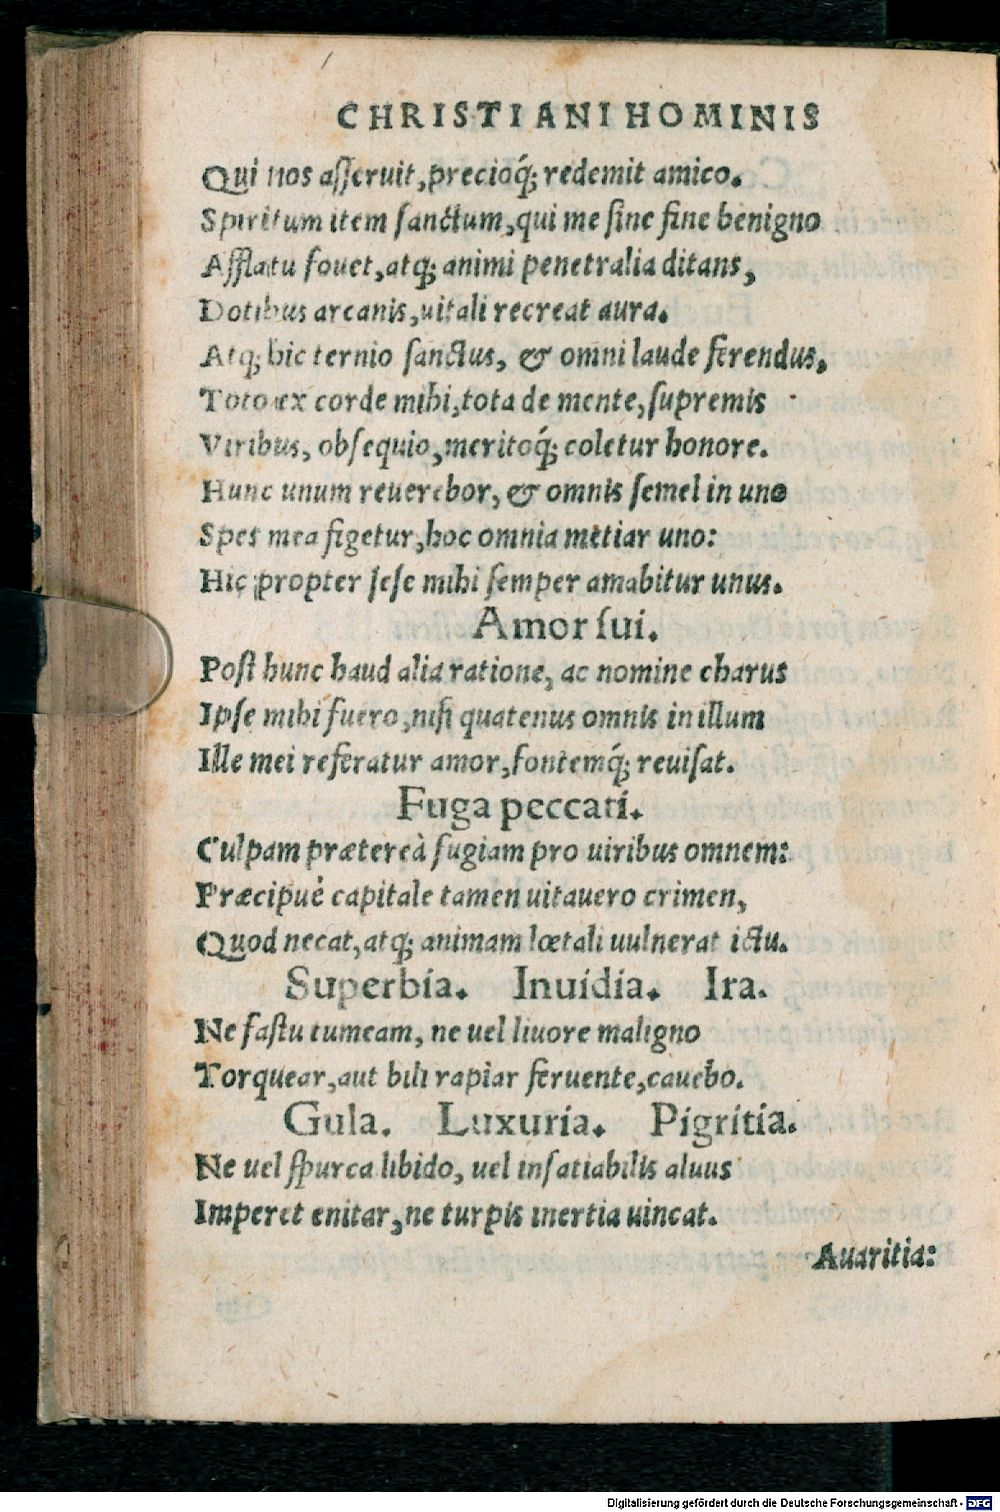 CHRISTIANI HOMINIS
Qui nos asseruit, precioq́; redemit amico.
Spiritum item sanctum, qui me sine fine benigno
Afflatu fouet, atq; animi penetralia ditans,
Dotibus arcanis, uitali recreat aura.
Atq; hic ternio sanctus, & omni laude ferendus,
Toto ex corde mihi, tota de mente, supremis
Viribus, obsequio, meritoq́; coletur honore.
Hunc unum reuerebor, & omnis semel in uno
Spes mea figetur, hoc omnia metiar uno:
Hic propter sese mihi semper amabitur unus.
Amor sui.
Post hunc haud alia ratione, ac nomine charus
Ipse mihi fuero, nisi quatenus omnis in illum
Ille mei referatur amor, fontemq́; reuisat.
Fuga peccati.
Culpam prætereà fugiam pro uiribus omnem:
Præcipuè capitale tamen uitauero crimen,
Quod necat, atq; animam lœtali uulnerat ictu.
Superbia. Inuidia. Ira.
Ne fastu tumeam, ne uel liuore maligno
Torquear, aut bili rapiar feruente, cauebo.
Gula. Luxuria. Pigritia.
Ne uel spurca libido, uel insatiabilis aluus
Imperet enitar, ne turpis inertia uincat.
Auaritia:
Digitalisierung gefördert durch die Deutsche Forschungsgemeinschaft - DFG